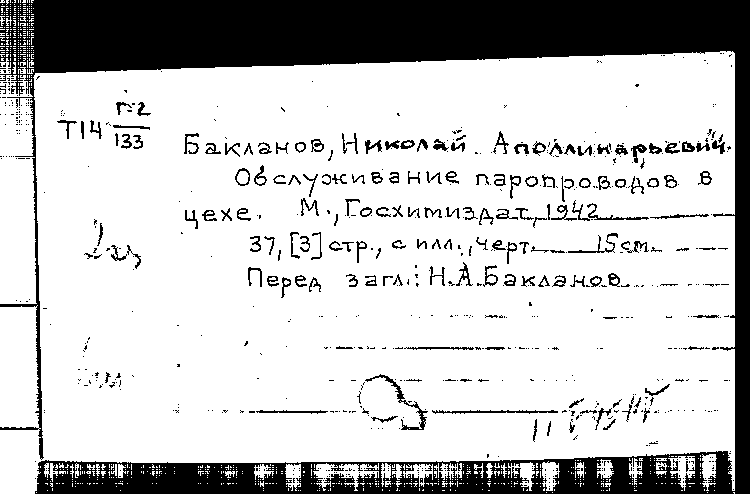 Т14 Г-2/133
Бакланов, Николай Аполлинарьевич.
Обслуживание паропроводов в
цехе. М., Госхимиздат, 1942
37, [3] стр., с илл., черт. 15 см.
Перед загл.: Н.А. Бакланов.